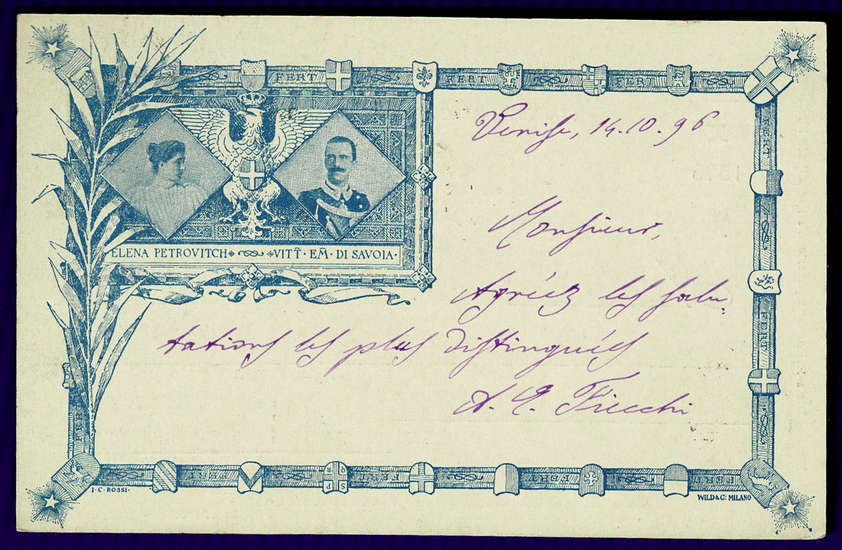 FERT FERT FERT FERT
ELENA PETROVITCH VITT· EM· DI SAVOIA·
Venise, 14.10.96
Monsieur,
Agréez les salu-
tations les plus distinguées
FERT
FERT
FERT
FERT FERT FERT FERT
I·C·ROSSI·
WILD&C: MILANO